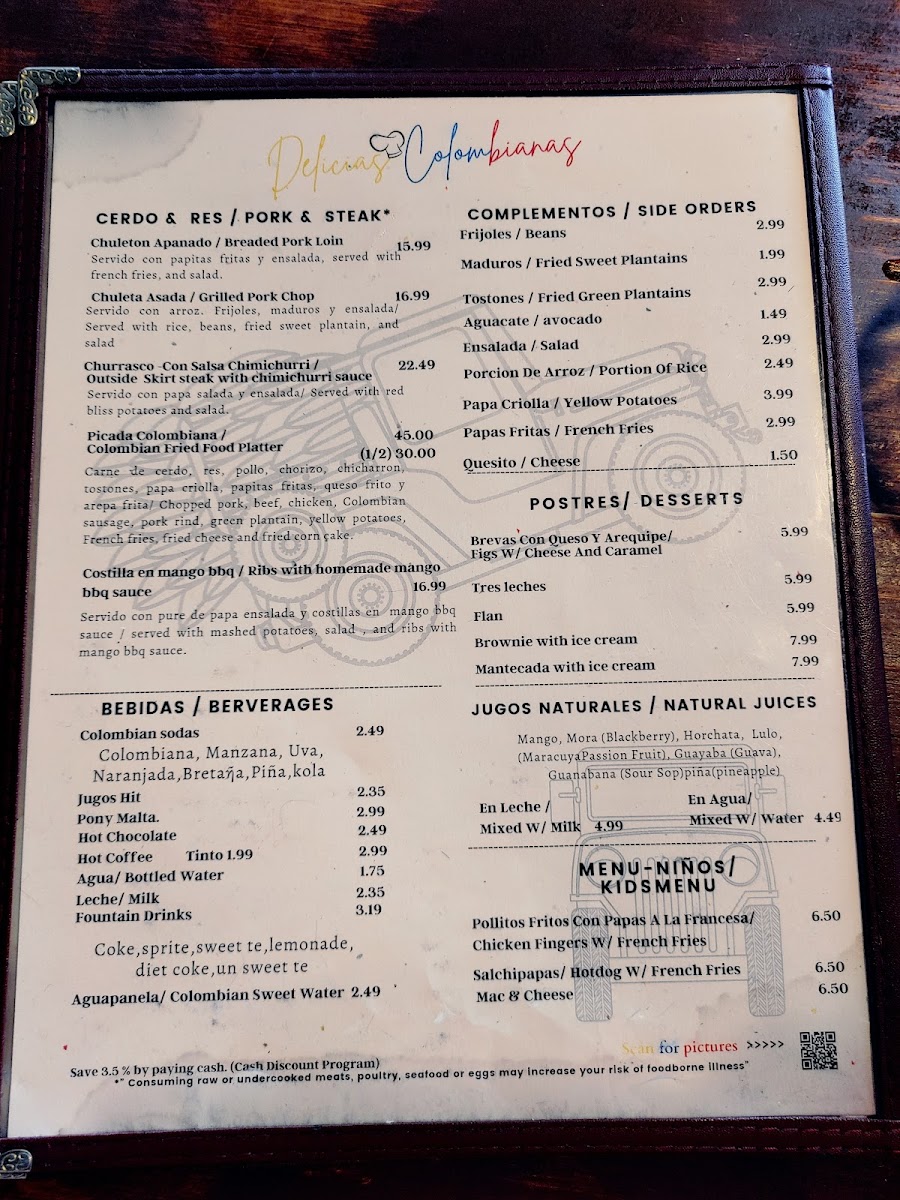 Delicias Colombianas
CERDO & RES / PORK & STEAK*
Chuleton Apanado / Breaded Pork Loin 15.99
Servido con papitas fritas y ensalada, served with
french fries, and salad.
Chuleta Asada / Grilled Pork Chop 16.99
Servido con arroz. Frijoles, maduros y ensalada/
Served with rice, beans, fried sweet plantain, and
salad
Churrasco -Con Salsa Chimichurri / 22.49
Outside Skirt steak with chimichurri sauce
Servido con papa salada y ensalada/ Served with red
bliss potatoes and salad.
Picada Colombiana / 45.00
Colombian Fried Food Platter (1/2) 30.00
Carne de cerdo, res, pollo, chorizo, chicharron,
tostones, papa criolla, papitas fritas, queso frito y
arepa frita/ Chopped pork, beef, chicken, Colombian
sausage, pork rind, green plantain, yellow potatoes,
French fries, fried cheese and fried corn cake.
Costilla en mango bbq / Ribs with homemade mango
bbq sauce 16.99
Servido con pure de papa ensalada y costillas en mango bbq
sauce / served with mashed potatoes, salad , and ribs with
mango bbq sauce.
BEBIDAS / BERVERAGES
Colombian sodas 2.49
Colombiana, Manzana, Uva,
Naranjada,Bretaña,Piña,kola
Jugos Hit 2.35
Pony Malta. 2.99
Hot Chocolate 2.49
Hot Coffee Tinto 1.99 2.99
Agua/ Bottled Water 1.75
Leche/ Milk 2.35
Fountain Drinks 3.19
Coke,sprite,sweet te,lemonade,
diet coke,un sweet te
Aguapanela/ Colombian Sweet Water 2.49
COMPLEMENTOS / SIDE ORDERS
Frijoles / Beans 2.99
Maduros / Fried Sweet Plantains 1.99
Tostones / Fried Green Plantains 2.99
Aguacate / avocado 1.49
Ensalada / Salad 2.99
Porcion De Arroz / Portion Of Rice 2.49
Papa Criolla / Yellow Potatoes 3.99
Papas Fritas / French Fries 2.99
Quesito / Cheese 1.50
POSTRES/ DESSERTS
Brevas Con Queso Y Arequipe/ 5.99
Figs W/ Cheese And Caramel
Tres leches 5.99
Flan 5.99
Brownie with ice cream 7.99
Mantecada with ice cream 7.99
JUGOS NATURALES / NATURAL JUICES
Mango, Mora (Blackberry), Horchata, Lulo,
(MaracuyaPassion Fruit), Guayaba (Guava),
Guanabana (Sour Sop)piña(pineapple)
En Leche / En Agua/
Mixed W/ Milk 4.99 Mixed W/ Water 4.49
MENU-NIÑOS/
KIDSMENU
Pollitos Fritos Con Papas A La Francesa/ 6.50
Chicken Fingers W/ French Fries
Salchipapas/ Hotdog W/ French Fries 6.50
Mac & Cheese 6.50
Scan for pictures >>>>>
Save 3.5 % by paying cash. (Cash Discount Program)
*" Consuming raw or undercooked meats, poultry, seafood or eggs may increase your risk of foodborne illness"